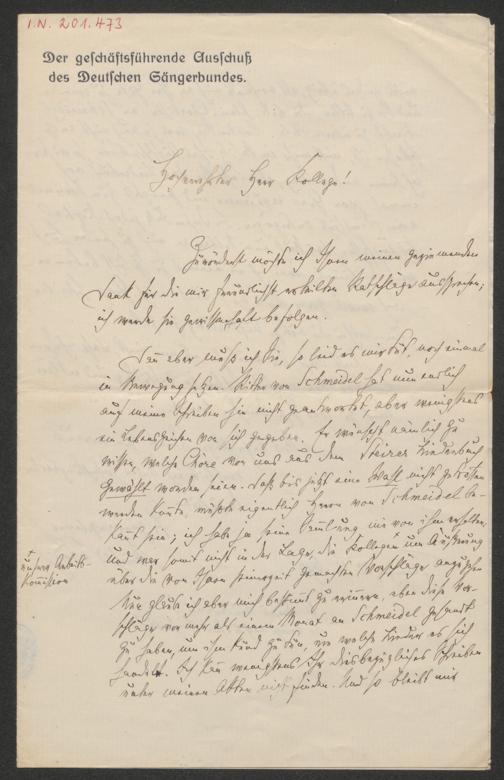 I.N. 201.473
Der geschäftsführende Ausschuß
des Deutschen Sängerbundes.
Hochverehrter Herr Kollege!
Zuvörderst möchte ich Ihnen meinen geziemenden
Dank für die mir freundlichst erteilten Ratschläge aussprechen;
ich werde sie gewissenhaft befolgen.
Nun aber muß ich Sie, so leid es mir tut, noch einmal
in Bewegung setzen. Ritter von Schmeidel hat nun endlich
auf meine Schreiben hin nicht geantwortet, aber wenigstens
ein Lebenszeichen von sich gegeben. Er wünscht nämlich zu
wissen, welche Chöre von uns aus dem Steirer Liederbuch
gewählt worden seien. Daß bis jetzt eine Wahl nicht getroffen
werden konnte, müßte eigentlich Herrn von Schmeidel be-
kannt sein; ich habe ja seine Sendung nie von ihm erhalten,
und war somit nicht in der Lage, die Kollegen um Äußerung
unsere Arbeits-
kommission
über die von Ihnen seinerzeit gemachten Vorschläge anzugehen.
Nun glaube ich aber mich bestimmt zu erinnern, eben diese Vor-
schläge vor mehr als einem Monat an Schmeidel gesandt
zu haben, um ihm kund zu tun, um welche Lieder es sich
handelt. Ich kann wenigstens Ihr diesbezügliches Schreiben
unter meinen Akten nicht finden. Und so bleibt mir